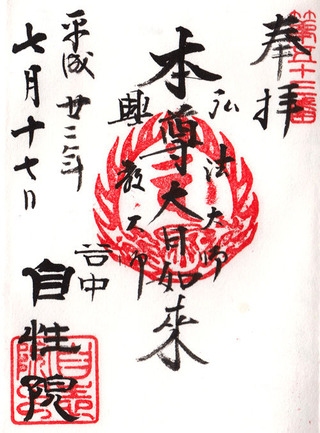 第五十三番
奉拝
弘法大師
本尊大日如来
興教大師
平成廿二年
七月十七日
自性院